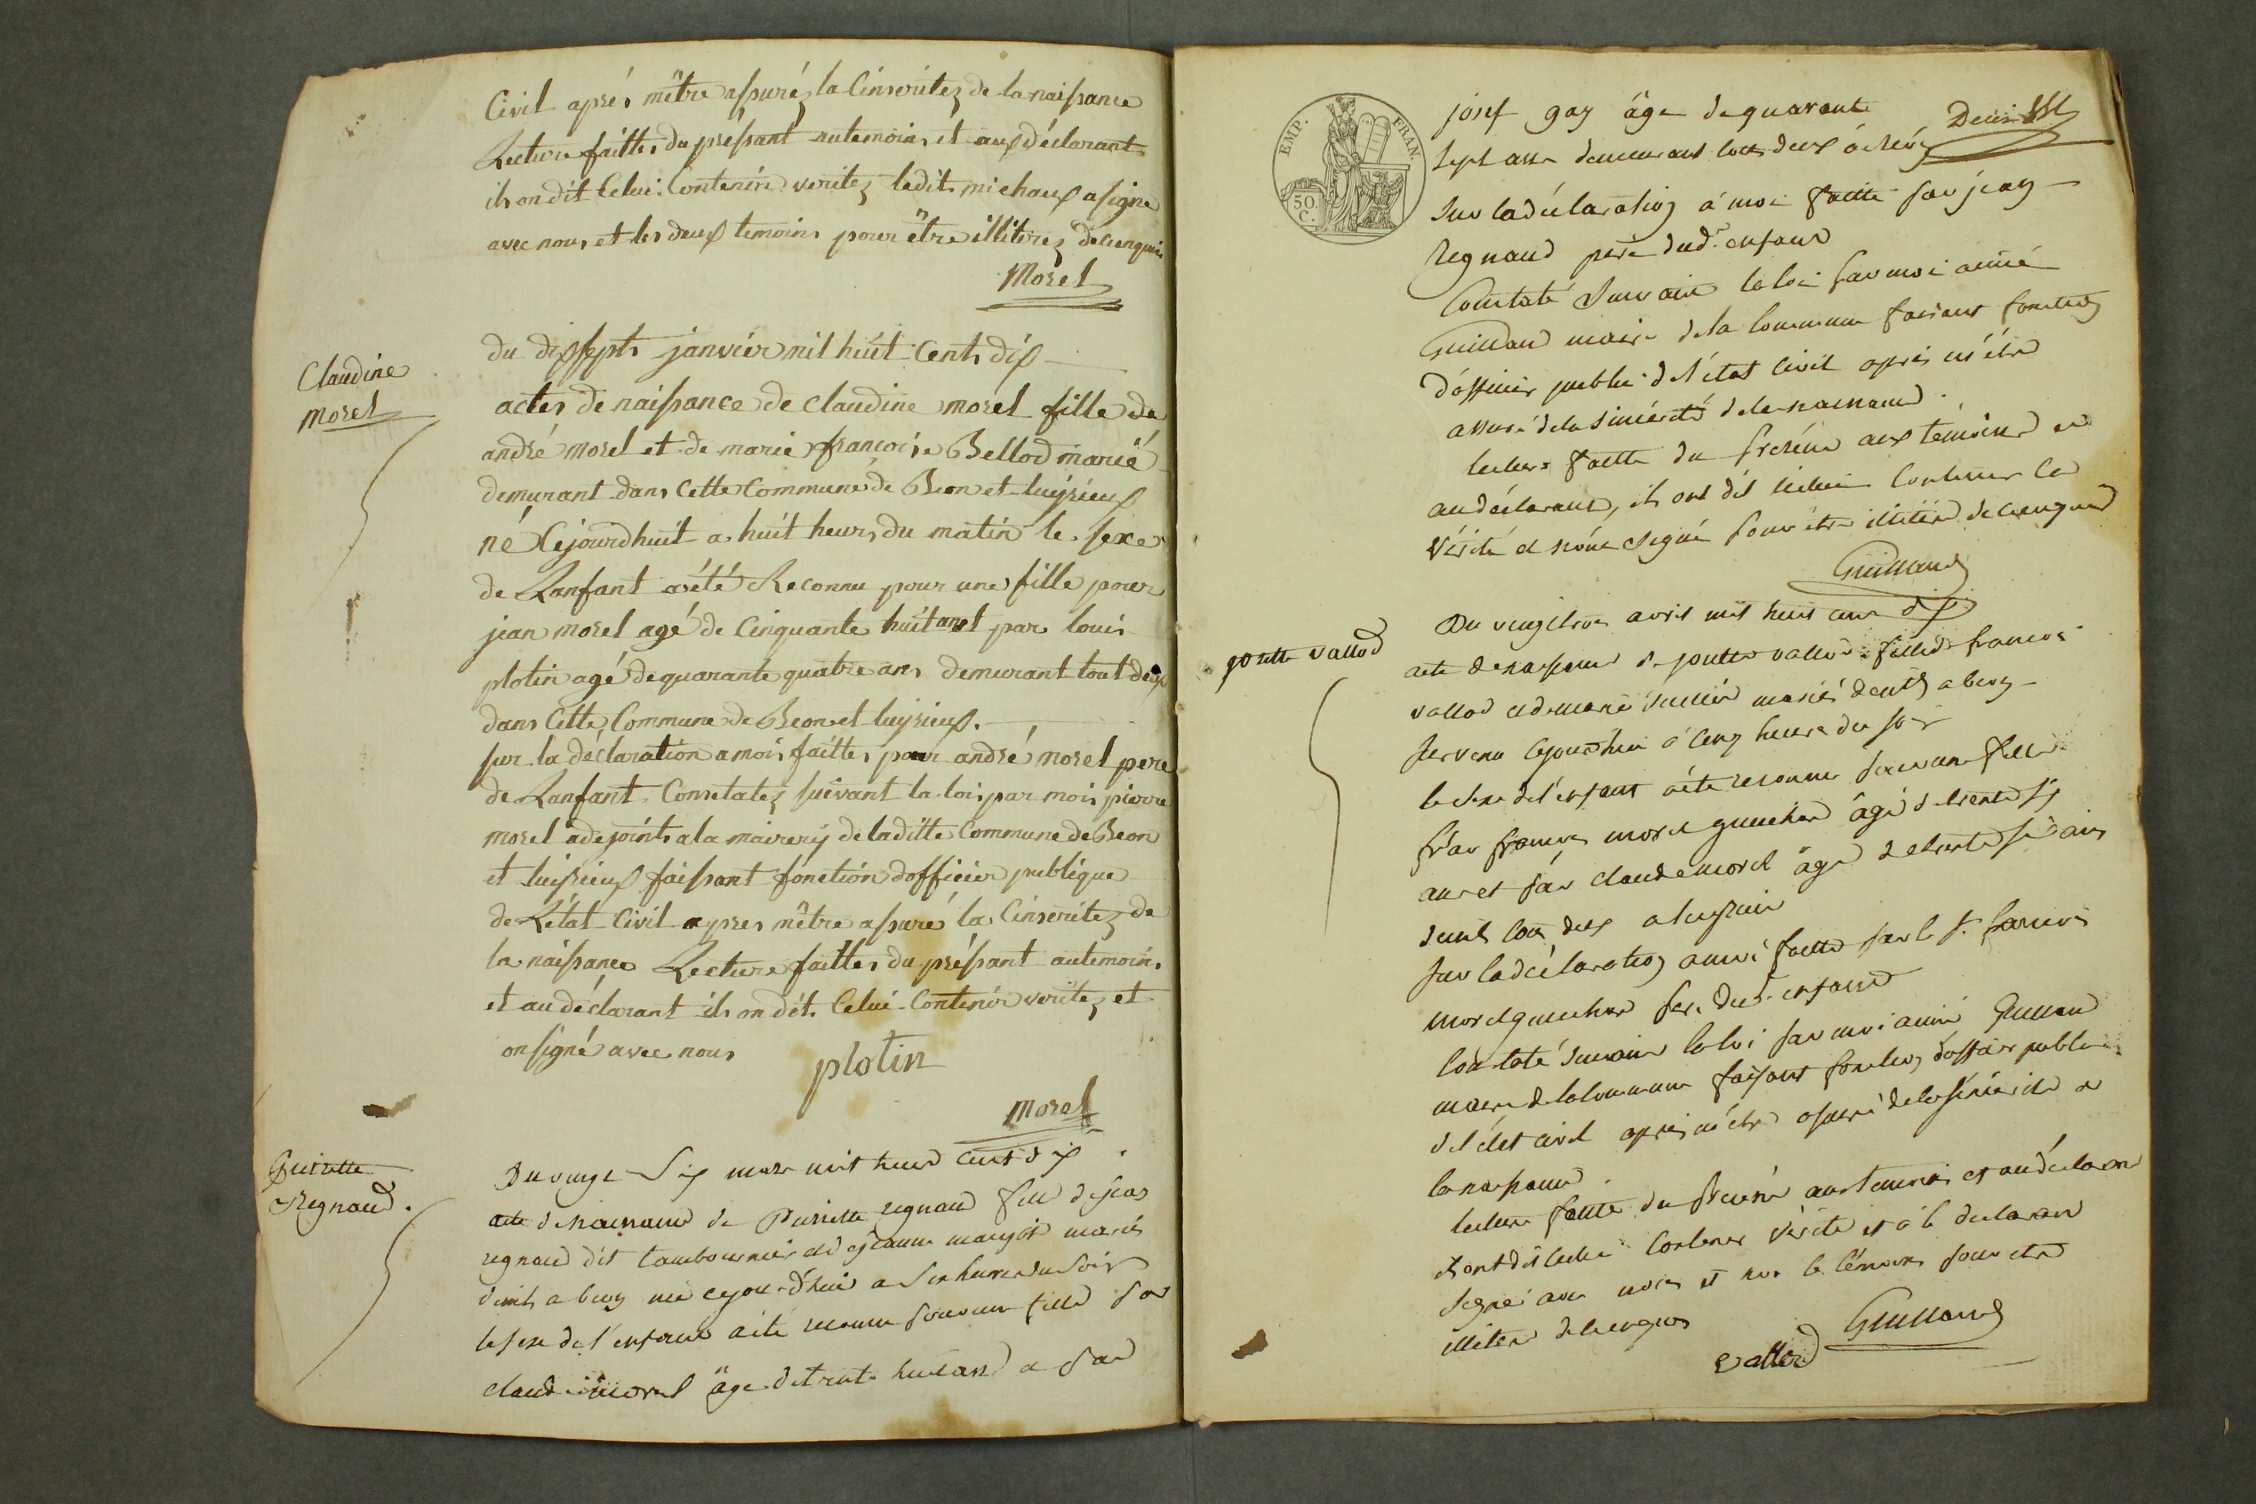 Civil aprés mêtre assuré la Cinseritez de la naissance
Lecture faittes du préssant autemoins et aux déclarant
ils on dit Celui Contenire veritez ledit michaux a signe
avec nous et les deux temoins pour être illiterez de ce enquis
Morel
Claudine
morel
du dixsept janvéir mil huit Cents dix
actes de naissance de Claudine morel fille de
andré morel et de marie françoise Bellod marié
demurant dans Cette Commune de Beon et luyrieux
né Cejourdhuit a huit heurs du matin le sexe
de Lanfant a été Reconnu pour une fille pour
jean morel agé de Cinquante huit ans et par louis
plotin agé de quarante quatre ans demurant tout deux
dans Cette Commune de Beon et luyrieux.
sur la déclaration a mois faittes pour andré morel pere
de Lanfant Constatez suivant la lois par mois pierre
morel adejoint a la mairery de laditte Commune de Beon
et luyrieux faissant fonction dofficier publique
de Létat Civil apres mêtre assuré la Cinseritez de
la naissance Lecture faittes du préssant autemoins
et au déclarant ils on dét Celui Contenir veritez et
on signé avec nous
plotin
Morel
Regnaud.
Du vingt six mars mil huit cent dix
acte de naissance de Pierrette regnaud fille de jean
regnaud dit tambournier et de jeanne maris
a beon née cejourd'hui a six heures du soir
le sexe de l'enfant a été reconnu pour une fille par
claude morel âgé de trente huit ans et par
EMP. FRAN.
50
C.
josef gay âgé de quarante
sept ans demeurant tous deux
sur la déclaration a moi faitte par jean
Regnaud père dudt enfant
Constaté suivant la loi par moi aimé
Guilland maire de la Commune faisant fonction
d'officier public de l'état civil après m'être
assuré de la sincérité de la naissance
lecture faitte du présent aux témoins et
au déclarant, ils ont dit icelui Contenir la
vérité et n'ont signé pour être illitéré de ce enquis
Guilland
josette vallod
Du vingt trois avril mil huit cent dix
acte de naissance de josette vallod fille de francois
vallod et de marie mariés demt a beon
survenu cejourd'hui a cinq heures du soir
le sexe de l'enfant a été reconnu pour une fille
par francois morel gunchon âgé de trente six
ans et par claude morel âgé de trente six ans
demt tous deux a luyrieu
sur la déclaration a moi faitte par le sr francois
morel gunchon père dudt enfant
Constaté suivant la loi par moi aimé Guilland
maire de la Commune faisant fonction d'officier public
de l'état civil après m'être assuré de la sincérité de
la naissance
lecture faitte du présent aux temoins et au déclarant
ils ont dit icelui Contenir vérité et a le declarant
signé avec nous et non le témoins pour etre
illitéré de ce enquis
Guilland
vallod